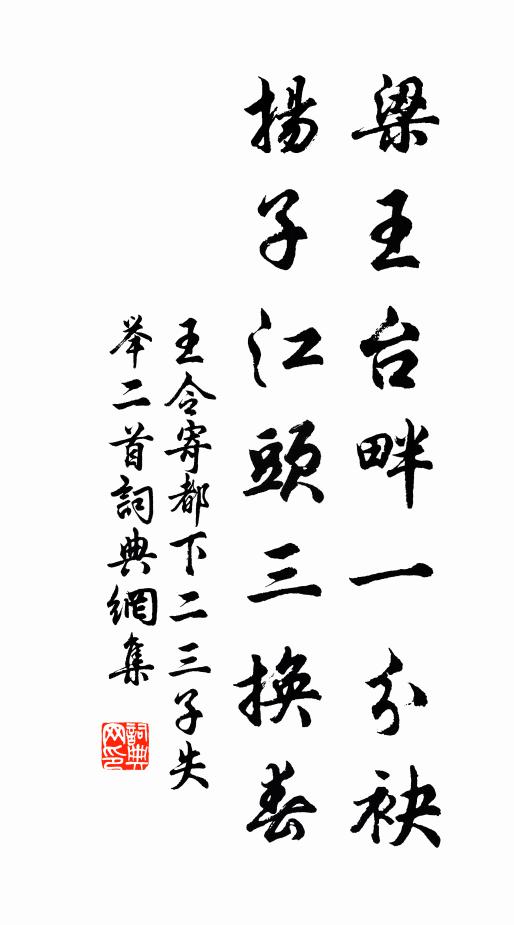 梁王台畔一分袂
揚子江頭三換春
王令寄都下二三子失
举二首詞典網集
詞典网印